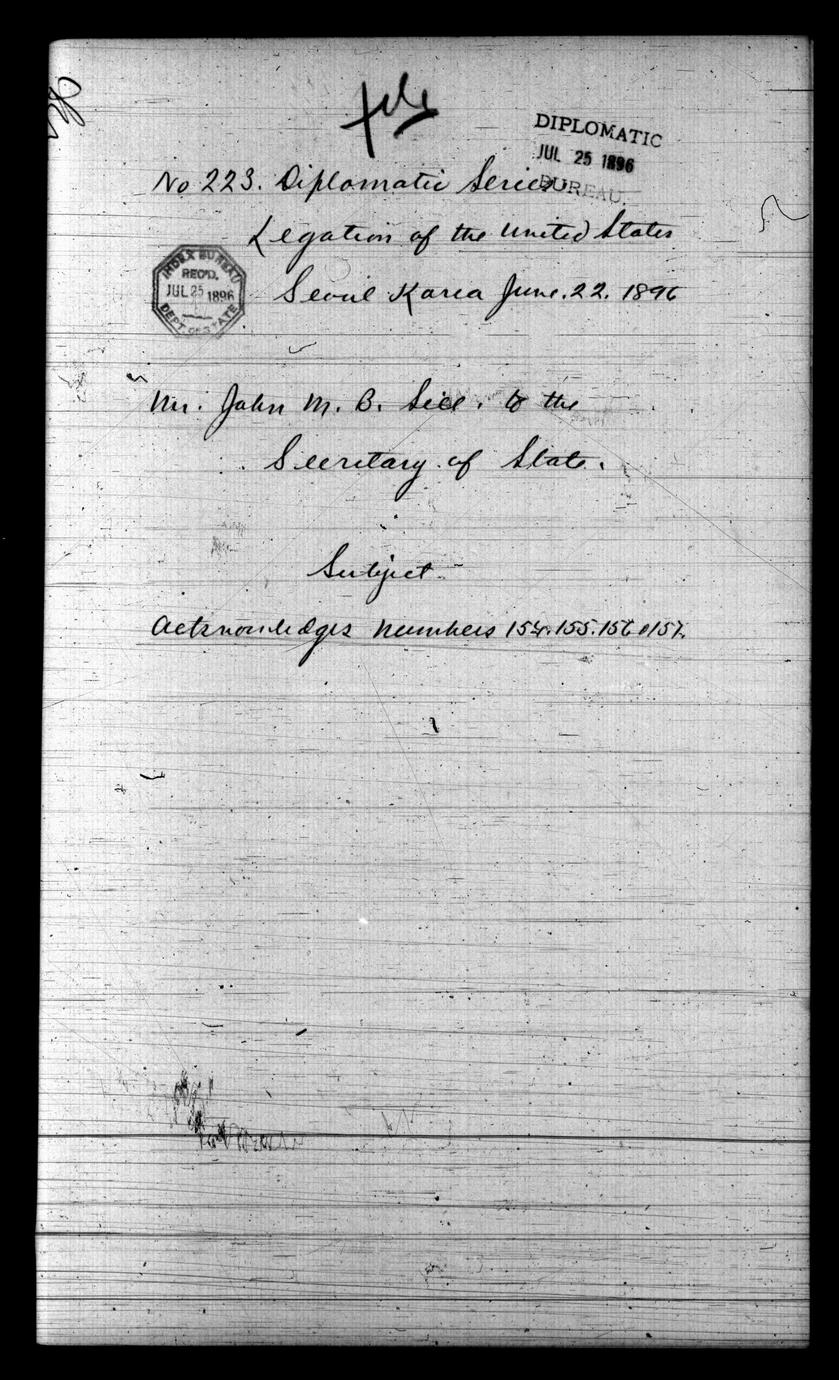 file
DIPLOMATIC
JUL 25 1896
BUREAU.
No 223. Diplomatic Series
Legation of the United States
INDEX BUREAU
REC'D.
JUL 25 1896
DEPT OF STATE
Seoul Korea June. 22. 1896
Mr. John M. B. Sill. to the
Secretary of State.
Subject.
Acknowledges Numbers 154.155.156 & 157.